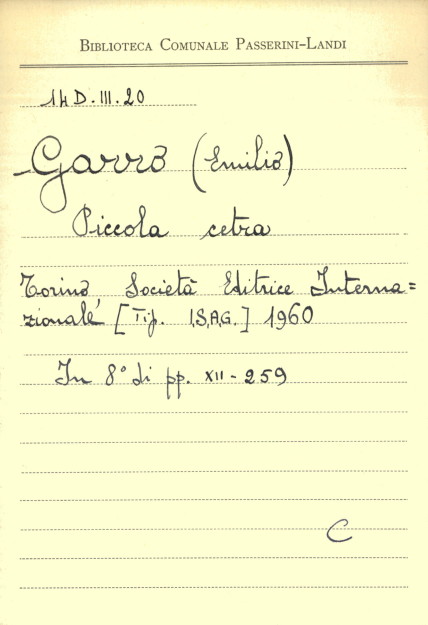 BIBLIOTECA COMUNALE PASSERINI-LANDI
14 D. III. 20
Garro (Emilio)
Piccola cetra
Torino Società Editrice Interna=
zionale [Tip. I.S.A.G.] 1960
In 8° di pp. XII - 259
C